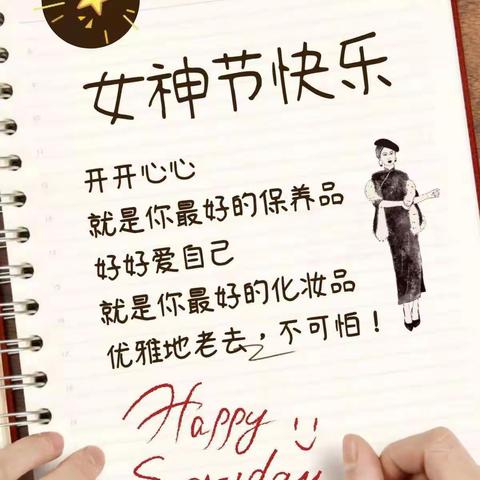 女神节快乐
开开心心
就是你最好的保养品
好好爱自己
就是你最好的化妆品
优雅地老去，不可怕！
Happy